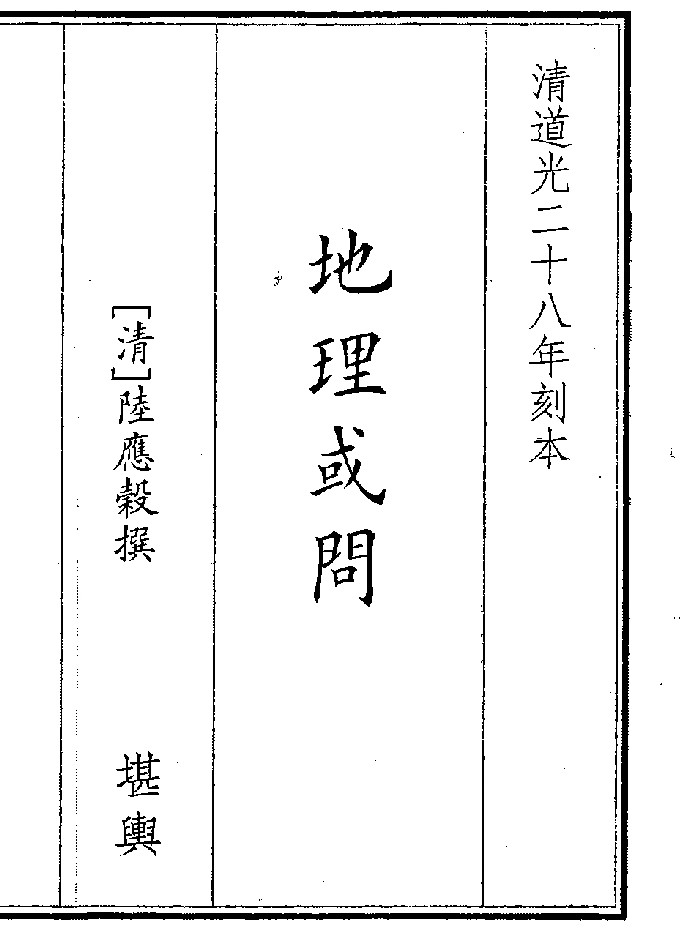 清道光二十八年刻本
地理或問
[清]陸應穀撰
堪輿